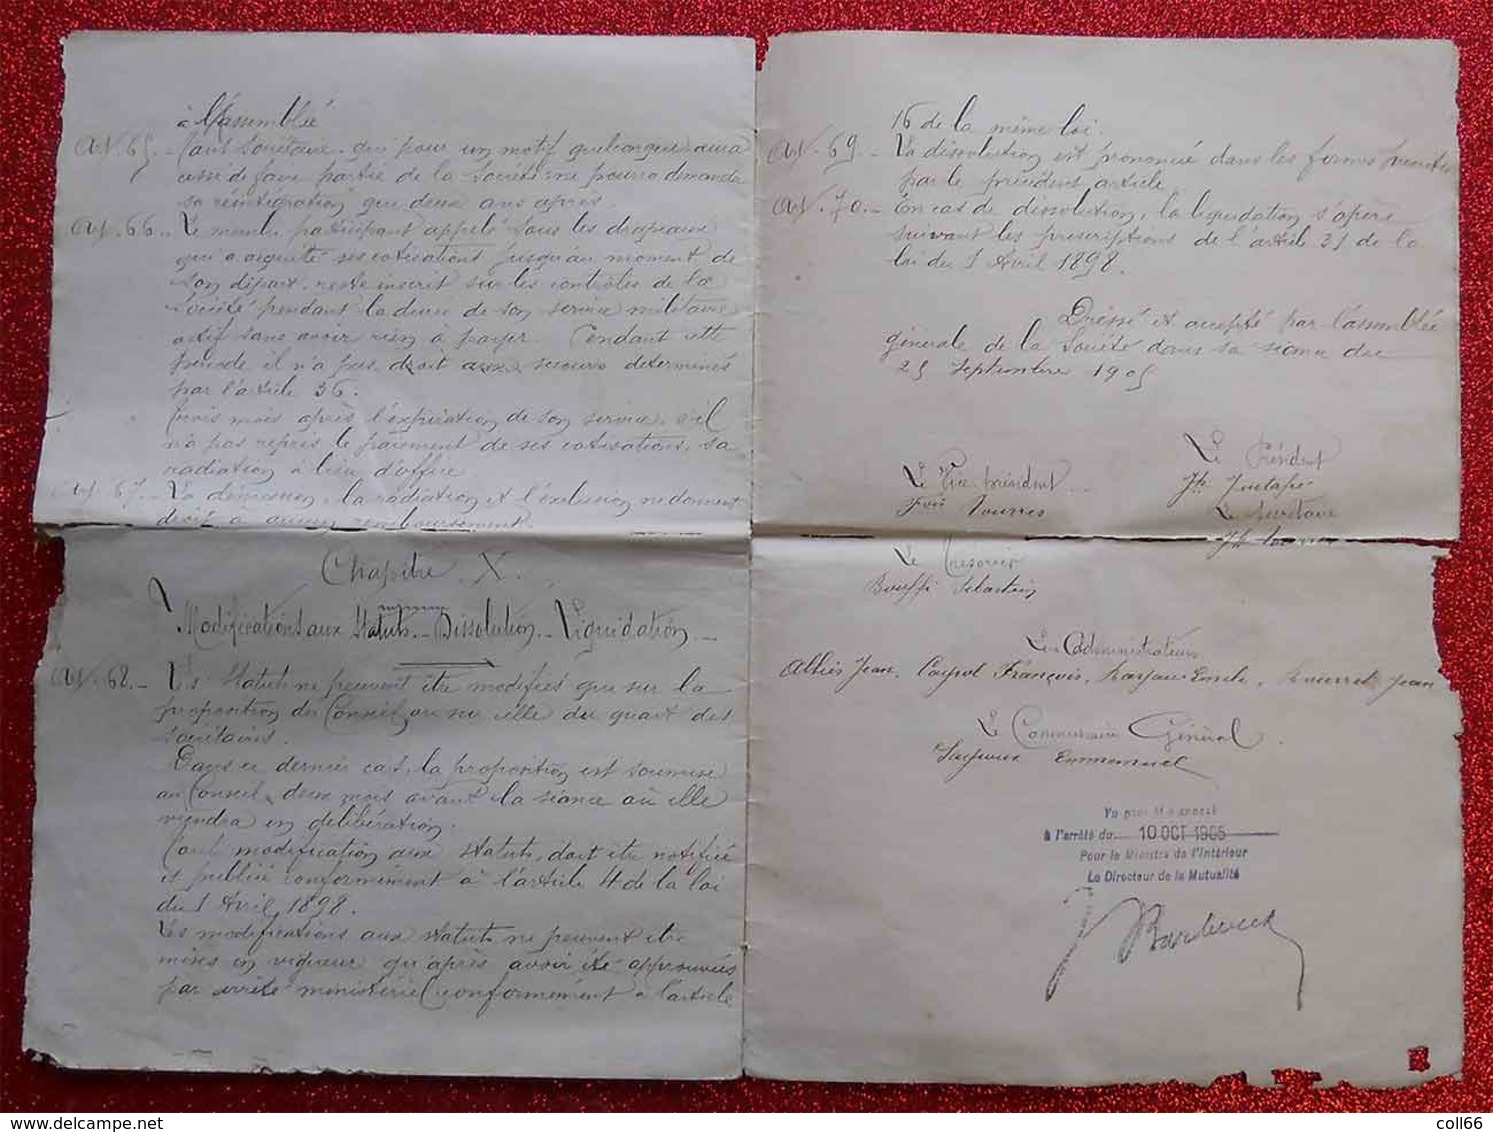 à l'Assemblée
Art. 65. - Tout Sociétaire qui pour un motif quelconque aura
cessé de faire partie de la Société ne pourra demander
sa réintégration que deux ans après.
Art. 66. - Le membre participant appelé sous les drapeaux
qui a acquitté ses cotisations jusqu'au moment de
son départ, reste inscrit sur les contrôles de la
Société pendant la durée de son service militaire
actif sans avoir rien à payer. Pendant cette
période il n'a pas droit aux secours déterminés
par l'article 36.
Trois mois après l'expiration de son service, s'il
n'a pas repris le paiement de ses cotisations, sa
radiation a lieu d'office.
Art. 67. - La démission, la radiation et l'exclusion ne donnent
droit à aucun remboursement.
Chapitre X.
Modifications aux Statuts. - Dissolution. - Liquidation. -
Art. 68. - Les Statuts ne peuvent être modifiés que sur la
proposition du Conseil, ou sur celle du quart des
sociétaires.
Dans ce dernier cas, la proposition est soumise
au Conseil, deux mois avant la séance où elle
viendra en délibération.
Toute modification aux Statuts, doit être notifiée
et publiée conformément à l'article 4 de la loi
du 1 Avril, 1898.
Les modifications aux Statuts ne peuvent être
mises en vigueur qu'après avoir été approuvées
par arrêté ministériel conformément à l'article
16 de la même loi.
Art. 69. - La dissolution est prononcée dans les formes prescrites
par le précédent article.
Art. 70. - En cas de dissolution, la liquidation s'opère
suivant les prescriptions de l'article 31 de la
loi du 1 Avril 1898.
Dressé et accepté par l'assemblée
générale de la Société dans sa séance du
25 Septembre 1905
Le Président
Le Vice-président
Le Secrétaire
Le Trésorier
Bouffi Sébastien
Les Administrateurs
Albis Jean, Caysol François, Emile, Jean
Le Commissaire Général
Emmanuel
Vu pour être annexé
à l'arrêté du 10 OCT 1905
Pour le Ministre de l'Intérieur
Le Directeur de la Mutualité
delcampe.net
coll66